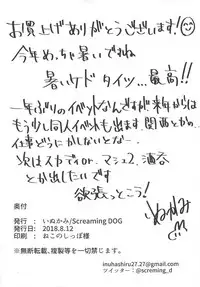 お買上げありがとうございます!
今年めっちゃ暑いですね
暑いケドタイツ…最高!!
一年ぶりのイベントなんですが来年からは
もう少し同人イベントも出ます 関西とか…
仕事どうにかしないとな…
次はスカディor.マシュ2、酒呑
とか出したいです
欲張っとこう!
ぬかみ
奥付
発行:いぬかみ/Screaming DOG
発行日:2018.8.12
印刷:ねこのしっぽ様
※無断転載、複製等を一切禁じます。
inuhashiru27.27@gmail.com
ツイッター:@screming_d